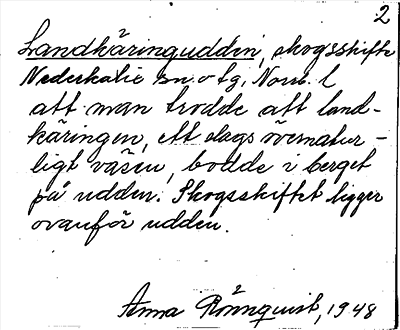 2
Landkäringudden, skogsskifte
Nederkalix sn. o tg. Norrb. l
att man trodde att land-
käringen, ett slags övernatur-
ligt väsen, bodde i berget
på udden. Skogsskiftet ligger
ovanför udden.
Anna Rönnquist, 1948